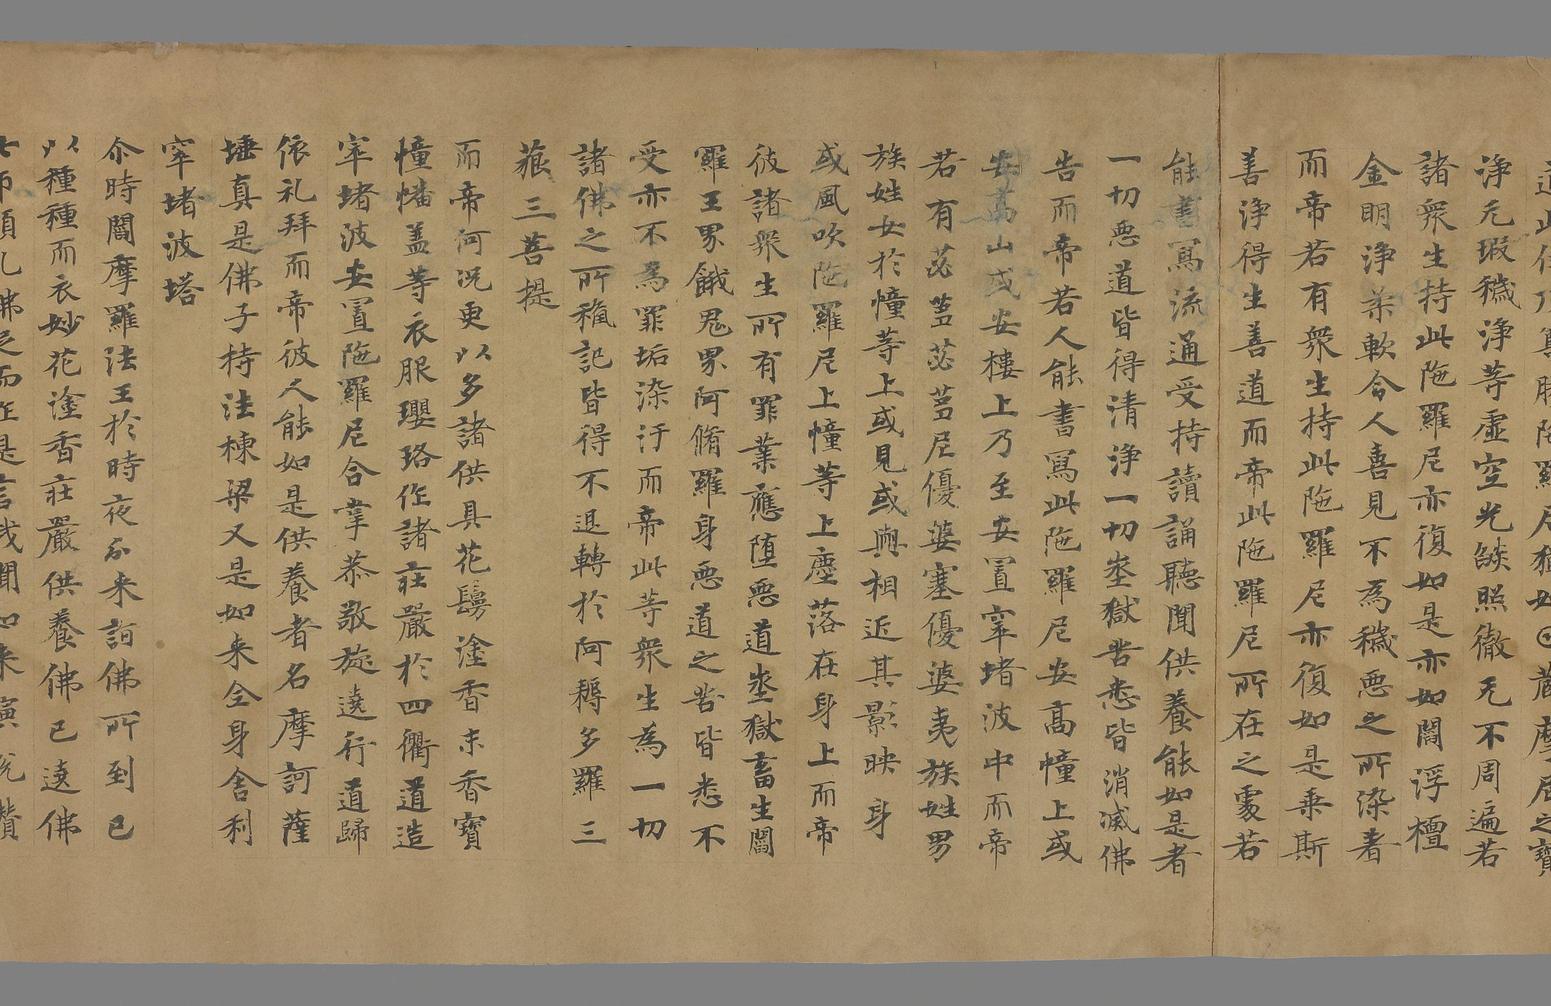 陁羅尼猶如〇藏摩尼之寶
淨无瑕穢淨等虛空光焰照徹无不周遍若
諸衆生持此陁羅尼亦復如是亦如閻浮檀
金明淨柔軟令人喜見不為穢惡之所染著
而帝若有衆生持此陁羅尼亦復如是乗斯
善淨得生善道而帝此陁羅尼所在之處若
能書寫流通受持讀誦聽聞供養能如是者
一切惡道皆得清淨一切埊獄苦悉皆消滅佛
告而帝若人能書寫此陁羅尼安高幢上或
安高山或安樓上乃至安置窣堵波中而帝
若有苾蒭苾蒭尼優婆塞優婆夷族姓男
族姓女於幢等上或見或與相近其影映身
或風吹陁羅尼上幢等上塵落在身上而帝
彼諸衆生所有罪業應堕惡道埊獄畜生閻
羅王界餓鬼界阿脩羅身惡道之苦皆悉不
受亦不為罪垢染汙而帝此等衆生為一切
諸佛之所稱記皆得不退轉於阿耨多羅三
藐三菩提
而帝何況更以多諸供具花鬘塗香末香寶
幢幡盖等衣服瓔珞作諸莊嚴於四衢道造
窣堵波安置陁羅尼合掌恭敬旋遶行道歸
依礼拜而帝彼人能如是供養者名摩訶薩
埵真是佛子持法棟梁又是如来全身舍利
窣堵波塔
尒時閻摩羅法王於時夜分来詣佛所到已
以種種而衣妙花塗香莊嚴供養佛已遶佛
七帀頂礼佛足而作是言我聞如来演說讚